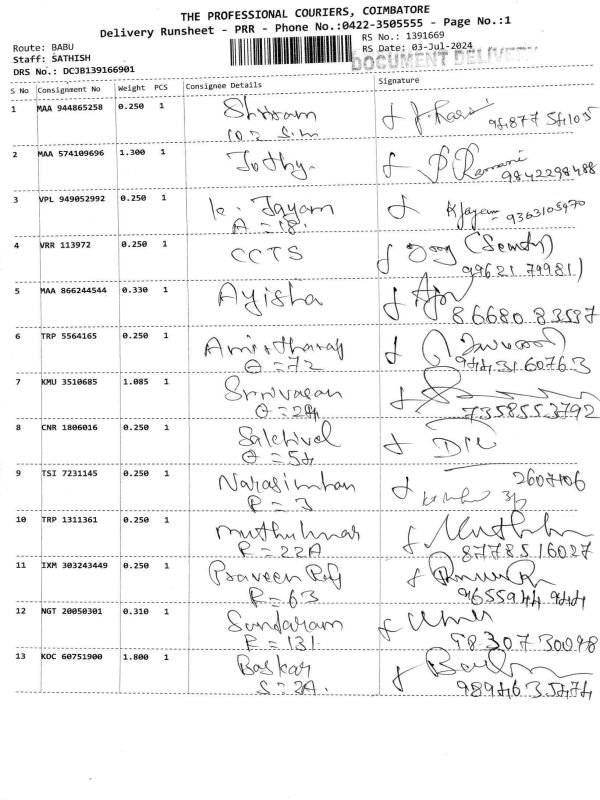 THE PROFESSIONAL COURIERS, COIMBATORE
Delivery Runsheet - PRR - Phone No.:0422-3505555 - Page No.:1
Route: BABU
RS No.: 1391669
Staff: SATHISH
RS Date: 03-Jul-2024
DOCUMENT DELIVERY
DRS No.: DCJB139166901
S No Consignment No Weight PCS Consignee Details Signature
1 MAA 944865258 0.250 1 Shriram
2 MAA 574109696 1.300 1 Jothy. P Ramani
9842298488
3 VPL 949052992 0.250 1 K. Jayam K Jayam 9363105970
A = 18.
4 VRR 113972 0.250 1 CCTS
99621 79981)
5 MAA 866244544 0.330 1 Ayisha
86680 83537
6 TRP 5564165 0.250 1 Amirtharaj
O = 72 9443160763
7 KMU 3510685 1.085 1 Srinivasan
O = 24 7358553792
8 CNR 1806016 0.250 1 Sakthivel
O = 54
9 TSI 7231145 0.250 1 Narasimhan 2607406
R = 3
10 TRP 1311361 0.250 1 Muthukumar
R = 22A 87785 16027
11 IXM 303243449 0.250 1 Praveen Raj
R = 63 9655944 944
12 NGT 20050301 0.310 1 Sundaram
R = 131 98307 30098
13 KOC 60751900 1.800 1 Baskar
S = 2A. 9894635474